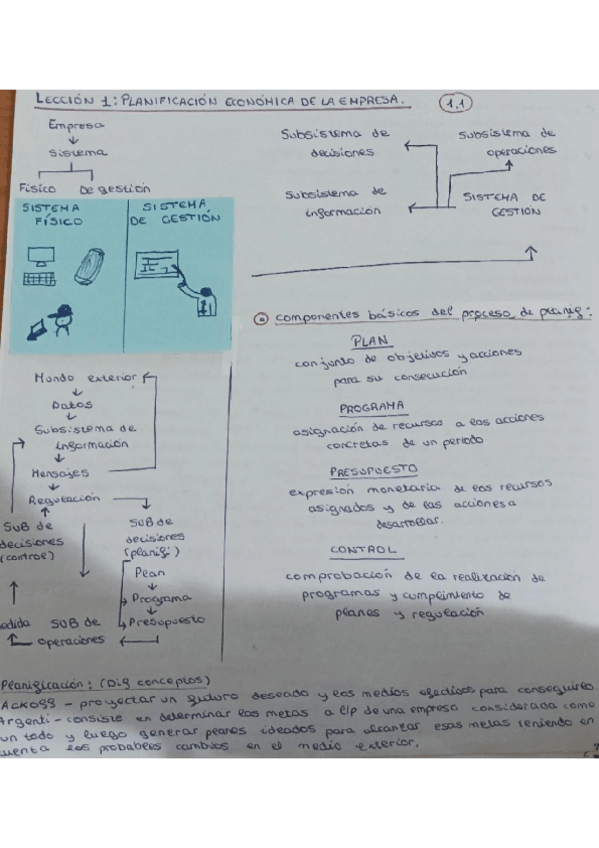 LECCIÓN 1: PLANIFICACIÓN ECONÓMICA DE LA EMPRESA. 1.1
Empresa
Sistema
Físico De gestión
SISTEMA FÍSICO
SISTEMA DE GESTIÓN
Subsistema de decisiones
Subsistema de operaciones
Subsistema de información
SISTEMA DE GESTIÓN
componentes básicos del proceso de planif:
PLAN
conjunto de objetivos y acciones
para su consecución
PROGRAMA
asignación de recursos a las acciones
concretas de un periodo
PRESUPUESTO
expresión monetaria de los recursos
asignados y de las acciones a
desarrollar.
CONTROL
comprobación de la realización de
programas y cumplimiento de
planes y regulación
Mundo exterior
Datos
Subsistema de
información
Mensajes
Regulación
SUB de
decisiones
(control)
SUB de
decisiones
(planifi)
Plan
Programa
Presupuesto
medida
SUB de
operaciones
Planificación: (Dif conceptos)
Ackoff - proyectar un futuro deseado y los medios efectivos para conseguirlo.
Argenti - consiste en determinar las metas a l/p de una empresa considerada como
un todo y luego generar planes ideados para alcanzar esas metas teniendo en
cuenta los probables cambios en el medio exterior.